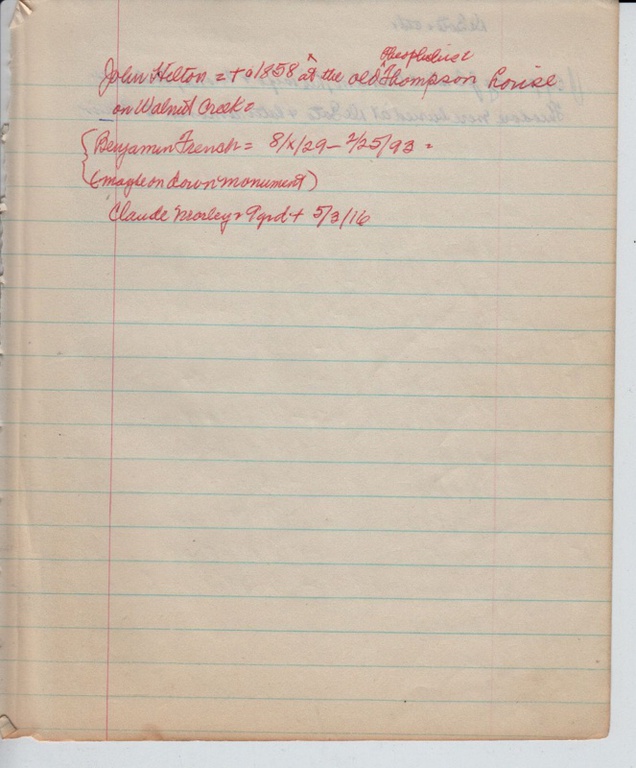 John Helton = + a 1858 at the old Theophilus Thompson house
on Walnut Creek =
Benjamin French = 8/x/29 – 2/25/93 =
(maybe on down monument)
Claude Mosley = + 5/3/16